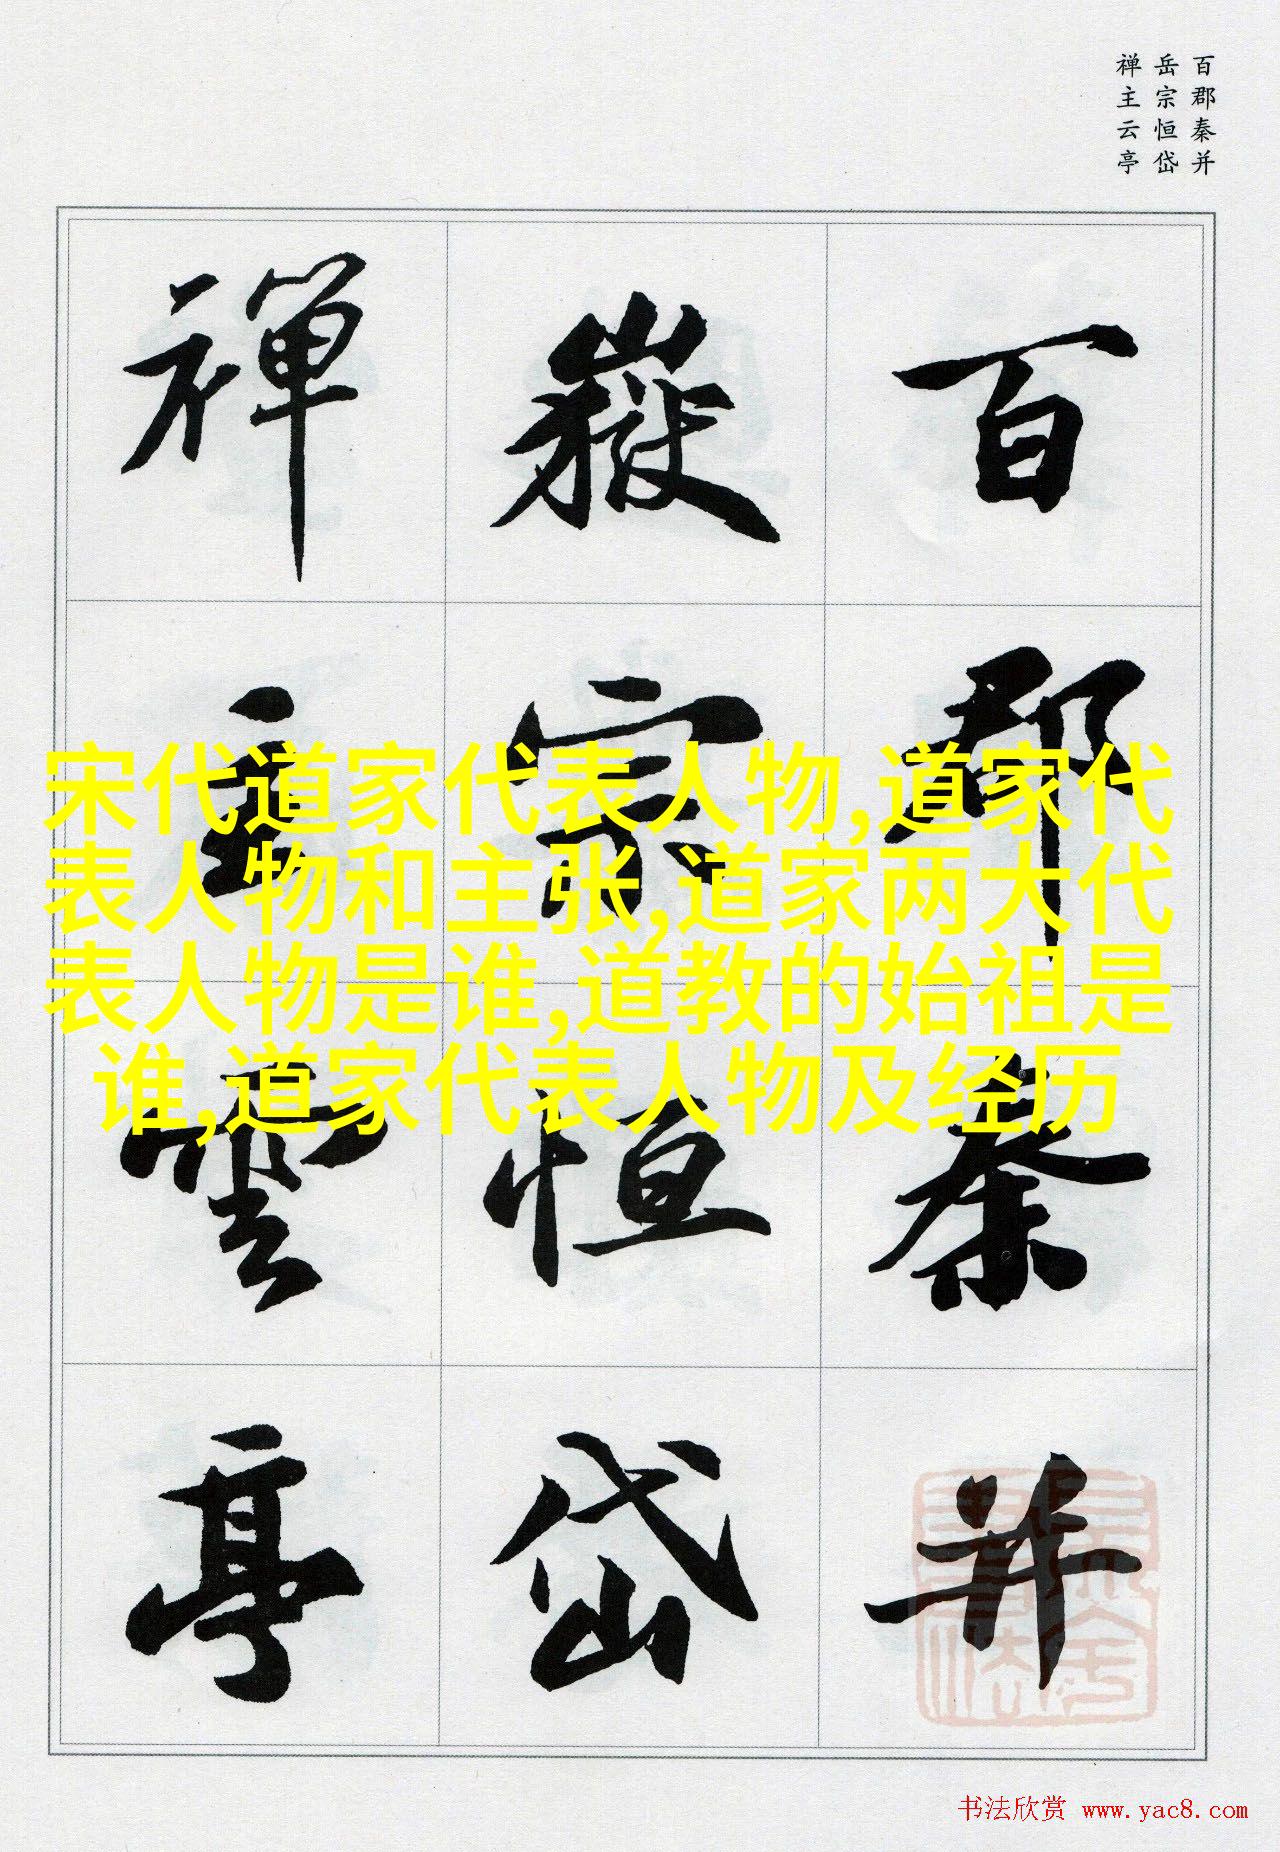 百郡秦并
岳宗恒岱
禅主云亭
百郡秦并
嶽宗恒岱
禅主雲亭
宋代道家代表人物,道家代
表人物和主张,道家两大代
表人物是谁,道教的始祖是
谁,道家代表人物及经历
书法欣赏 www.yac8.com